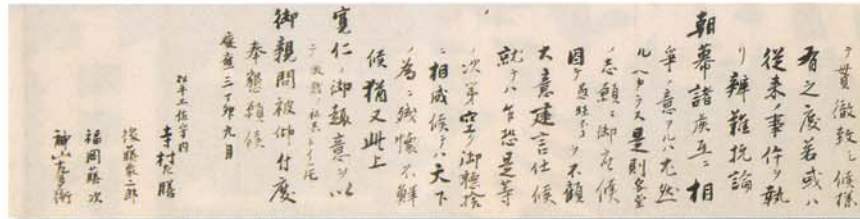 ヲ貫徹致シ候様
有之度若或ハ
従来ノ事件ヲ執
リ辨難抗論
朝幕諸侯互ニ相
争ノ意アルハ尤然
ルヘカラス是則容堂
ノ志願ニ御座候
因テ愚昧ヲ不顧
大意建言仕候
就テハ乍恐是等
ノ次第空ク御聴捨
ニ相成候テハ天下
ノ為ニ残懐不鮮
候猶又此上
寛仁ノ御趣意ヲ以
御親問被仰付度
奉懇願候
慶應三丁卯九月
松平土佐守内
寺村左膳
後藤象二郎
福岡藤次
神山左多衛